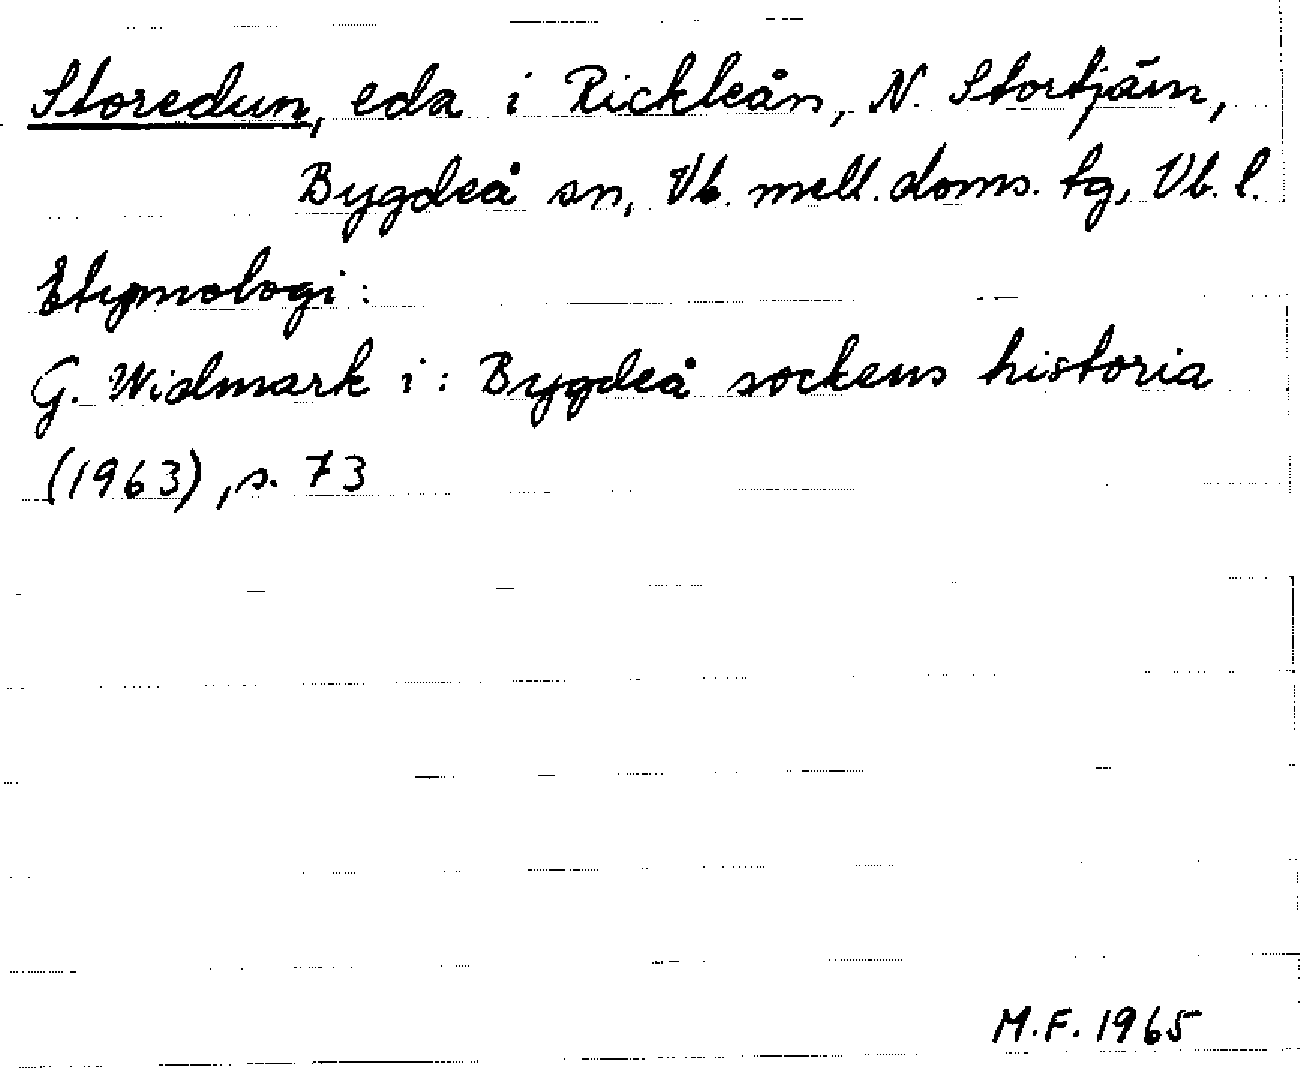 Storedun, eda i Rickleån, N. Stortjärn,
Bygdeå sn, Vb. mell. doms. tg, Vb. l.
Etymologi:
G. Widmark i: Bygdeå sockens historia
(1963), s. 73
M.F. 1965